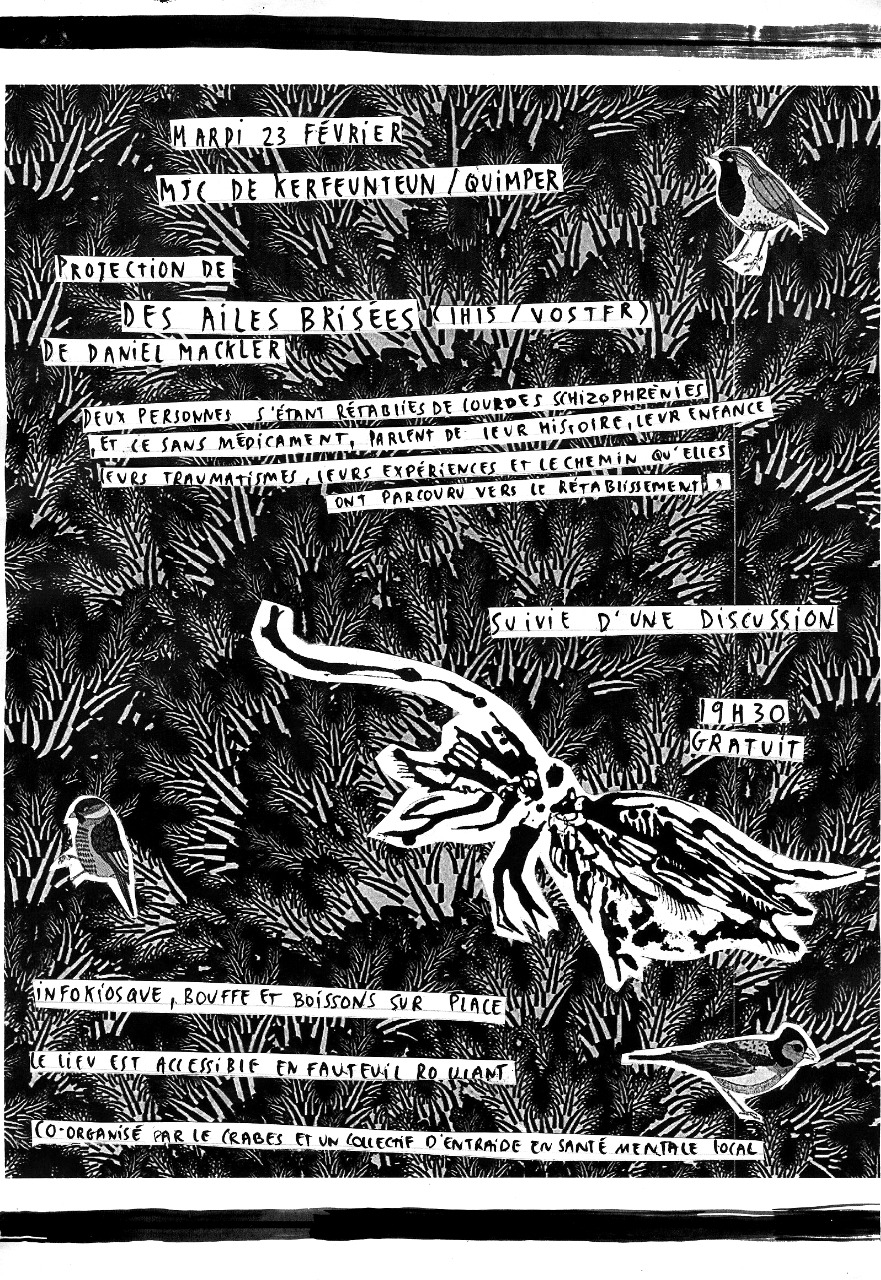 MARDI 23 FÉVRIER
MJC DE KERFEUNTEUN / QUIMPER
PROJECTION DE
DES AILES BRISÉES (1H15 / VOSTFR)
DE DANIEL MACKLER
DEUX PERSONNES S'ÉTANT RÉTABLIES DE LOURDES SCHIZOPHRÈNIES
, ET CE SANS MÉDICAMENT, PARLENT DE LEUR HISTOIRE, LEUR ENFANCE
LEURS TRAUMATISMES, LEURS EXPÉRIENCES ET LE CHEMIN QU'ELLES
ONT PARCOURU VERS LE RÉTABLISSEMENT,
SUIVIE D'UNE DISCUSSION
19H30
GRATUIT
INFOKIOSQUE, BOUFFE ET BOISSONS SUR PLACE
LE LIEU EST ACCESSIBLE EN FAUTEUIL ROULANT
CO-ORGANISÉ PAR LE CRABES ET UN COLLECTIF D'ENTRAIDE EN SANTÉ MENTALE LOCAL